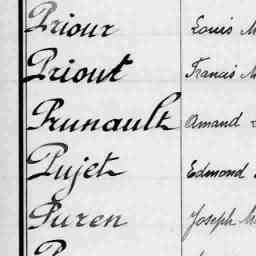 Priour Louis M
Priout Francis M
Prunault Amand
Pujet Edmond
Puren Joseph M